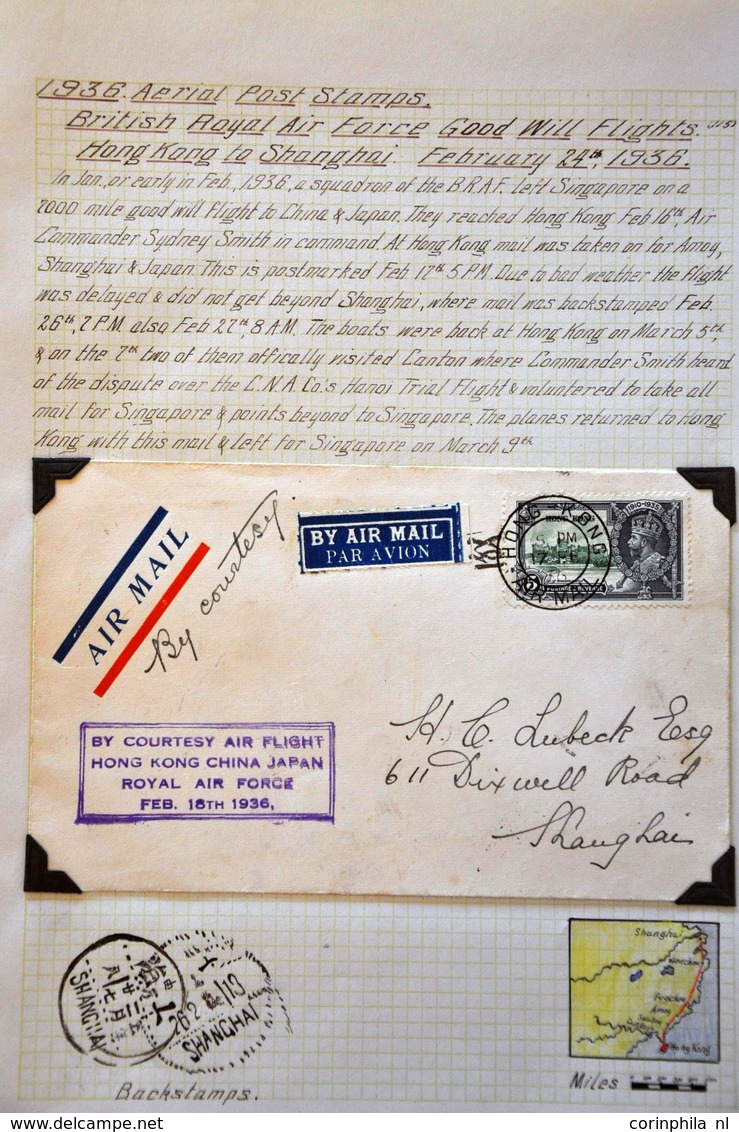 1936. Aerial Post Stamps.
British Royal Air Force Good Will Flights.
Hong Kong to Shanghai. February 24th, 1936.
In Jan, or early in Feb, 1936, a squadron of the B.R.A.F. left Singapore on a
2000 mile good will flight to China & Japan. They reached Hong Kong Feb 16th, Air
Commander Sydney Smith in command. At Hong Kong mail was taken on for Amoy,
Shanghai & Japan. This is postmarked Feb 17th 5 P.M. Due to bad weather the flight
was delayed & did not get beyond Shanghai, where mail was backstamped Feb.
26th, 7 P.M. also Feb 27th, 8 A.M. The boats were back at Hong Kong on March 5th,
& on the 7th two of them offically visited Canton where Commander Smith heard
of the dispute over the C.N.A.Co.'s Hanoi Trial Flight & volunteered to take all
mail for Singapore & points beyond to Singapore. The planes returned to Hong
Kong with this mail & left for Singapore on March 9th
AIR MAIL
By courtesy
BY AIR MAIL
PAR AVION
HONG KONG
5 PM
AIR MAIL
1910-1935
POSTAGE REVENUE
BY COURTESY AIR FLIGHT
HONG KONG CHINA JAPAN
ROYAL AIR FORCE
FEB. 18TH 1936,
H. C. Lubeck Esq
611 Dixwell Road
Shanghai
SHANGHAI
SHANGHAI
Backstamps.
Shanghai
Wenchow
Foochow
Amoy
Hong Kong
Miles
corinphila nl